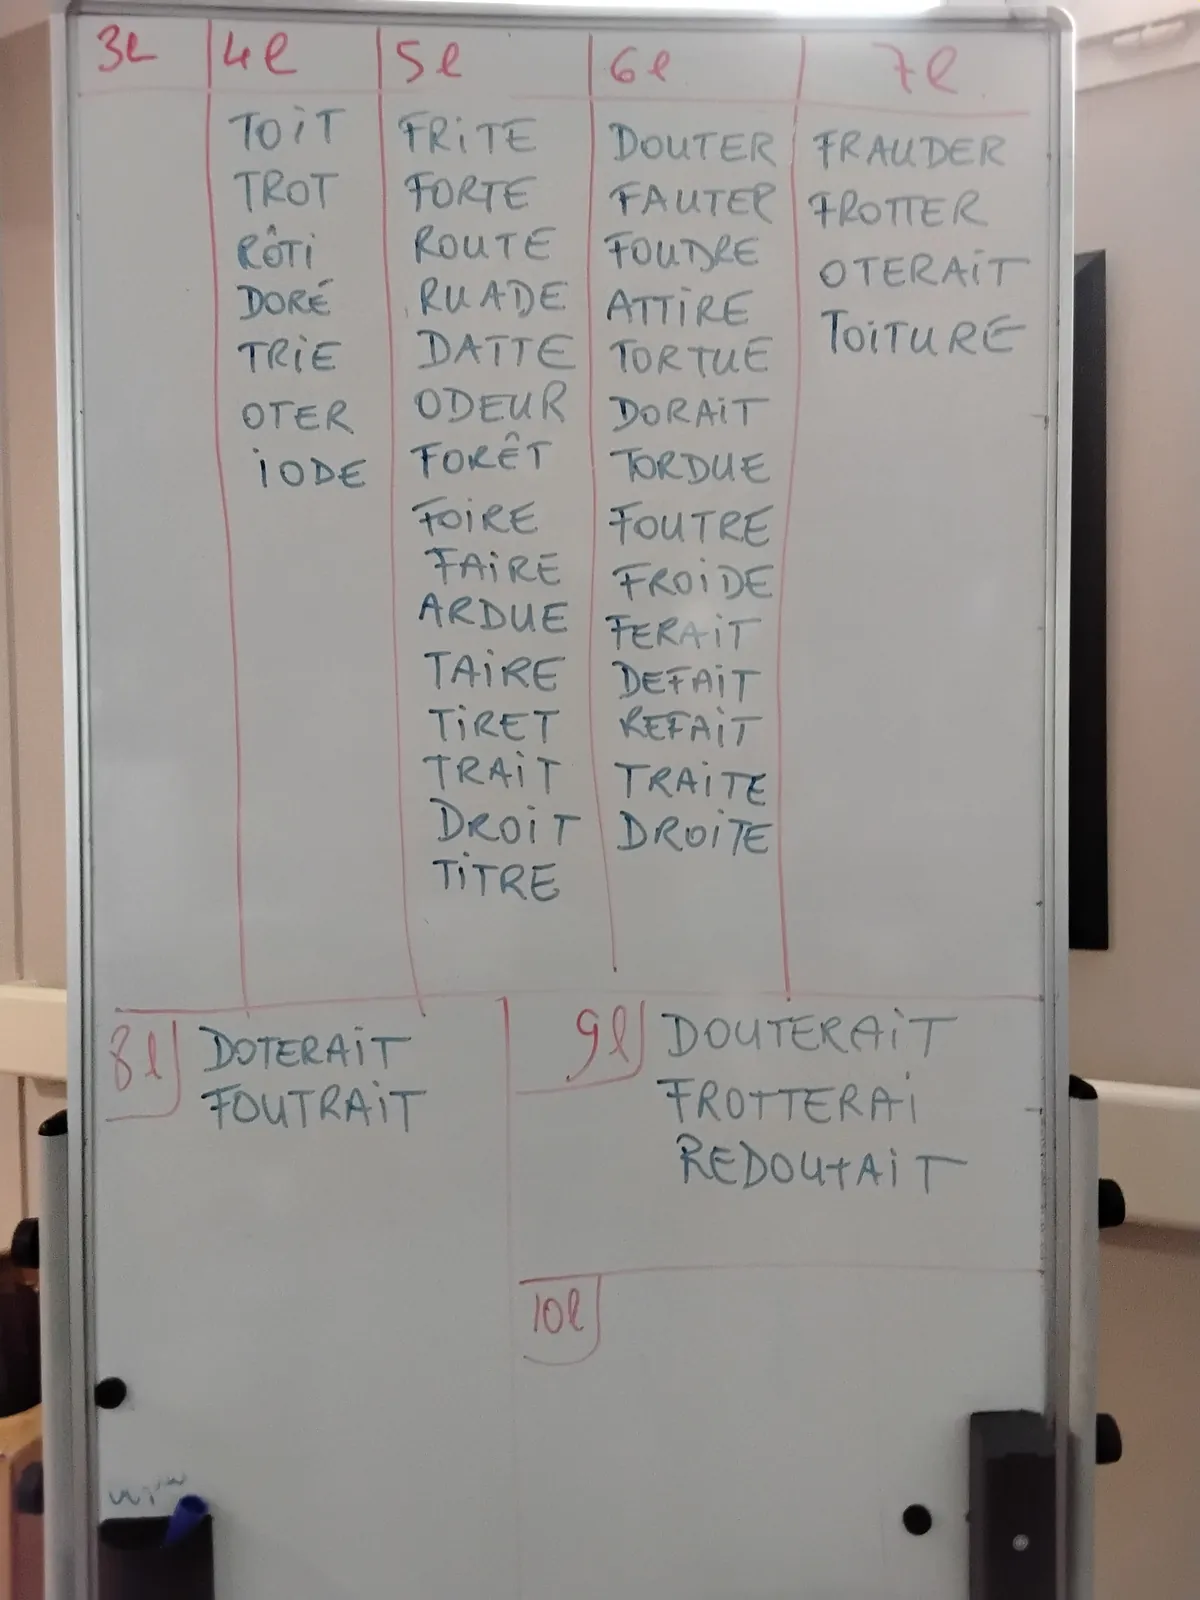 3l 4l 5l 6l 7l
TOIT
TROT
RÔTI
DORÉ
TRIE
OTER
IODE
FRITE
FORTE
ROUTE
RUADE
DATTE
ODEUR
FORÊT
FOIRE
FAIRE
ARDUE
TAIRE
TIRET
TRAIT
DROIT
TITRE
DOUTER
FAUTER
FOUDRE
ATTIRE
TORTUE
DORAIT
TORDUE
FOUTRE
FROIDE
FERAIT
DEFAIT
REFAIT
TRAITE
DROITE
FRAUDER
FROTTER
OTERAIT
TOITURE
8l
DOTERAIT
FOUTRAIT
9l
DOUTERAIT
FROTTERAI
REDOUTAIT
10l